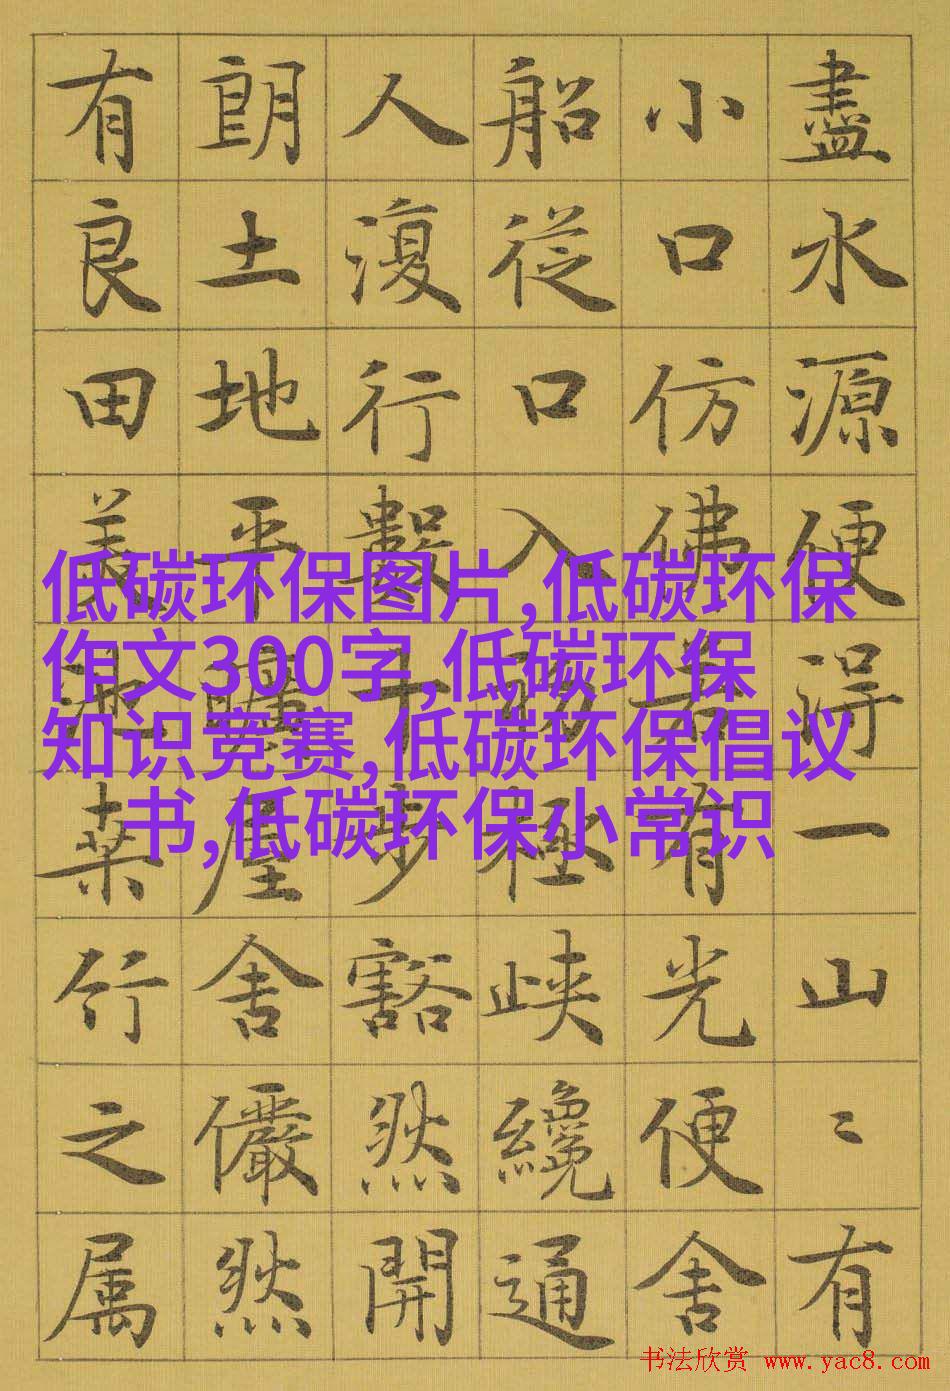 盡水源便得一山〻有
小口仿佛若有光便舍
船從口入初極峽纔通
人復行數十步豁然開
朗土地平曠屋舍儼然
有良田美池桑竹之属
低碳环保图片,低碳环保
作文300字,低碳环保
知识竞赛,低碳环保倡议
书,低碳环保小常识
书法欣赏 www.yac8.com